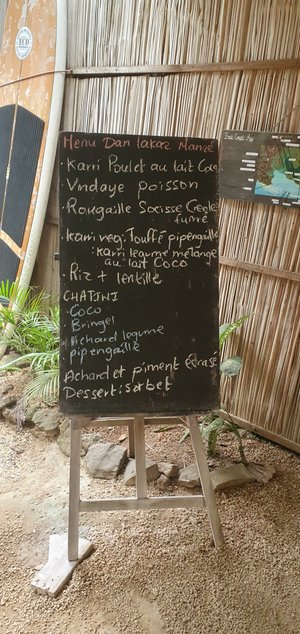 ECO
Menu Dan lakaz Manzé
East Coast Map
• Karri Poulet au lait Coco
• Vndaye poisson
• Rougaille Socisse Creole
fumé
• Karri veg: Touffé pipengaille
• karri legume mélange
au lait Coco
• Riz + lentille
CHATINI
• Coco
• Bringel
• Achard legume
pipengaille
Achard et piment écrasé
Dessert: Sorbet